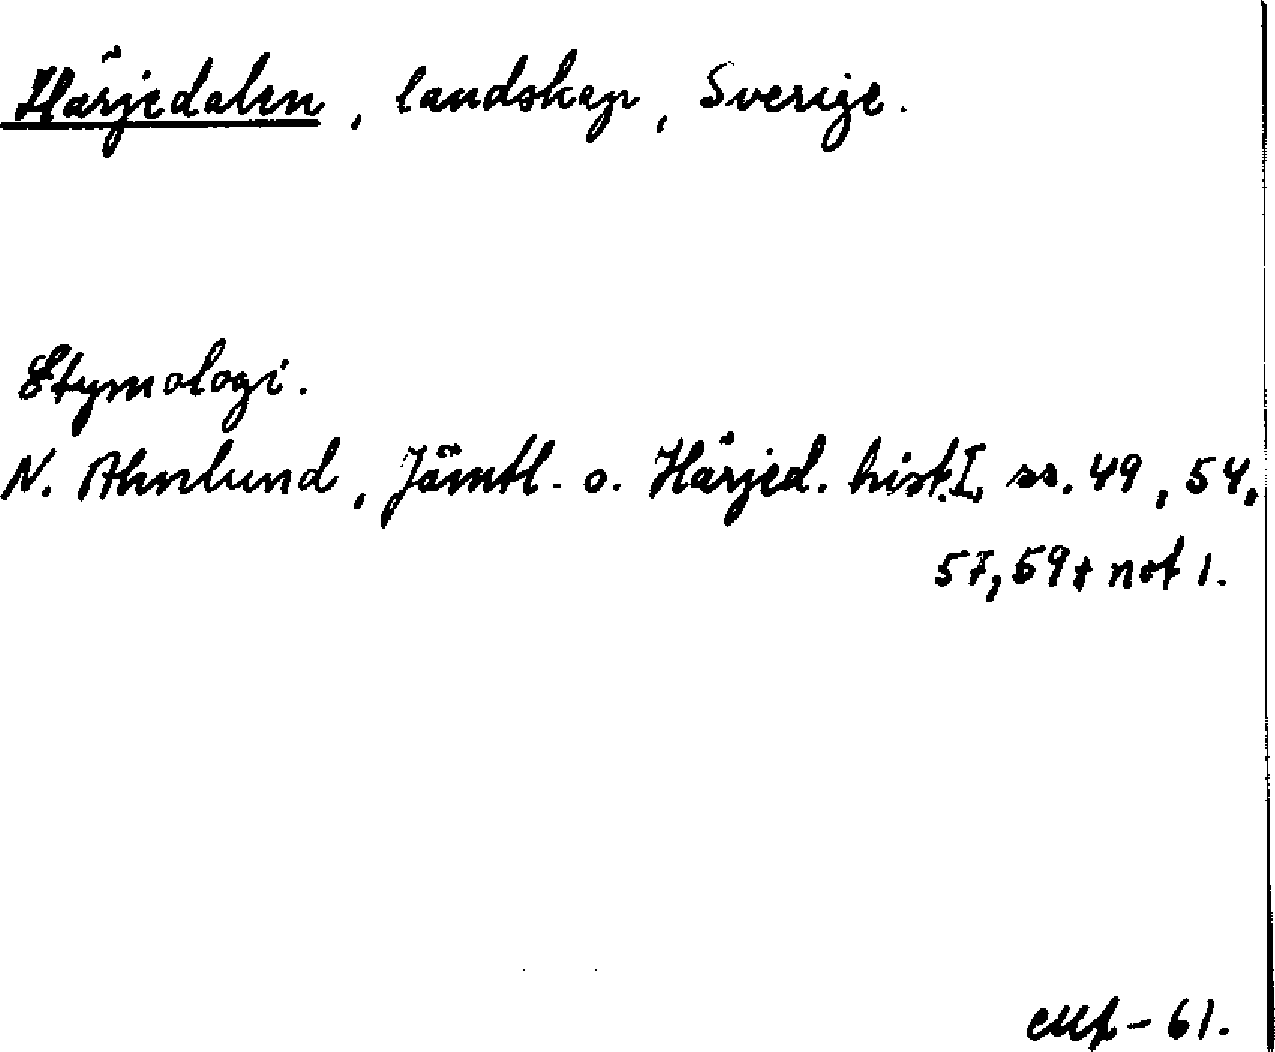 Härjedalen, landskap, Sverige.
Etymologi.
N. Ahnlund, Jämtl. o. Härjed. hist. I, ss. 49, 54,
57, 69 + not 1.
-61.